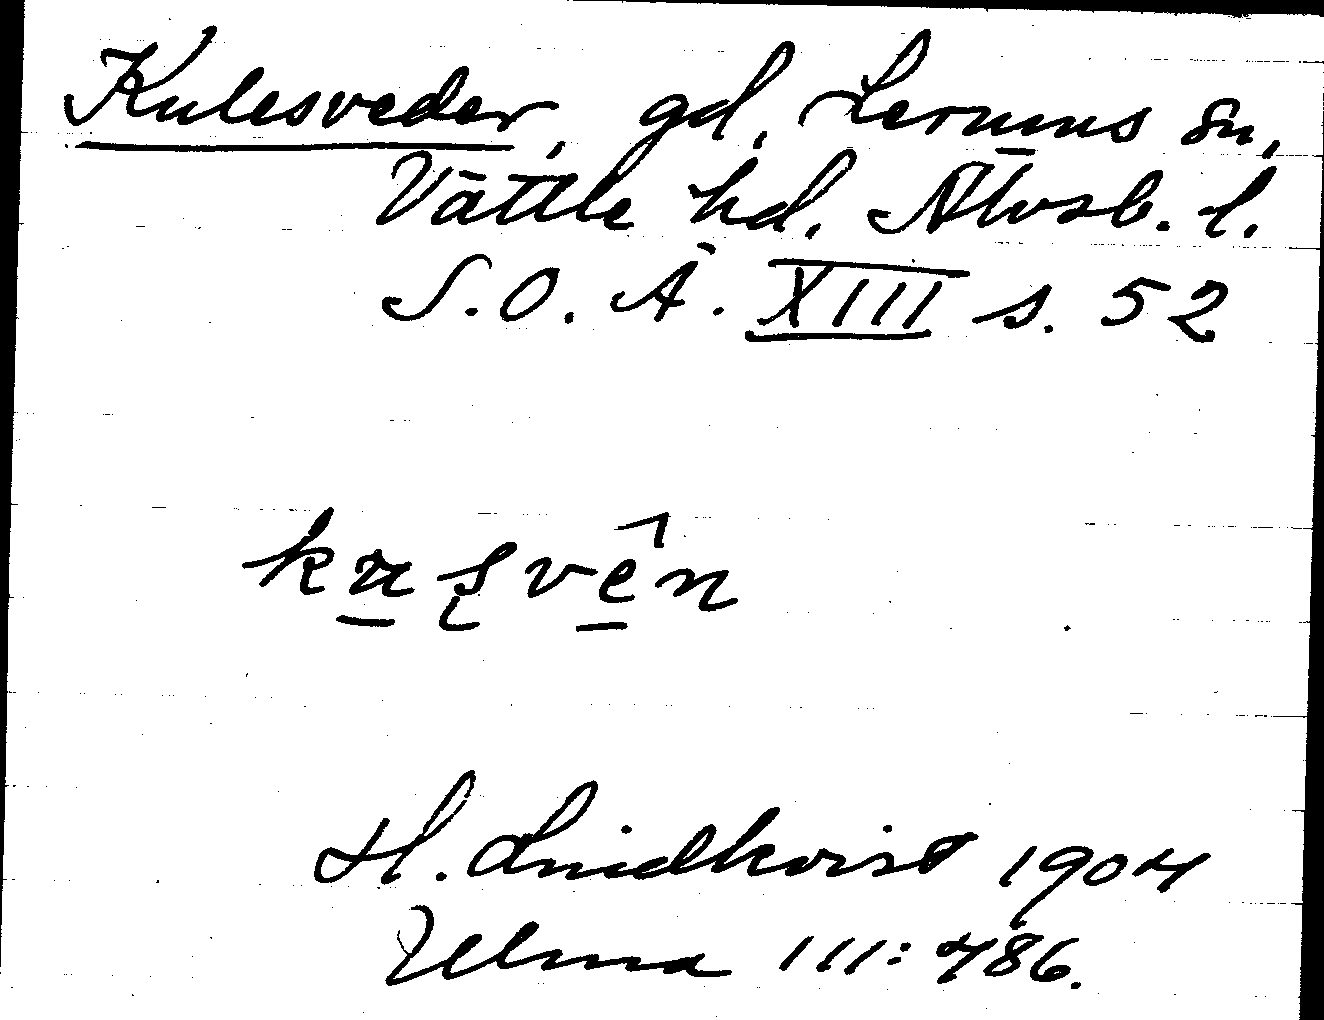 Kulesveder, gd, Lerums sn,
Vättle hd. Älvsb. l.
S.O.Ä. XIII s. 52
H. Lindkvist 1904
Ulma 111:786.